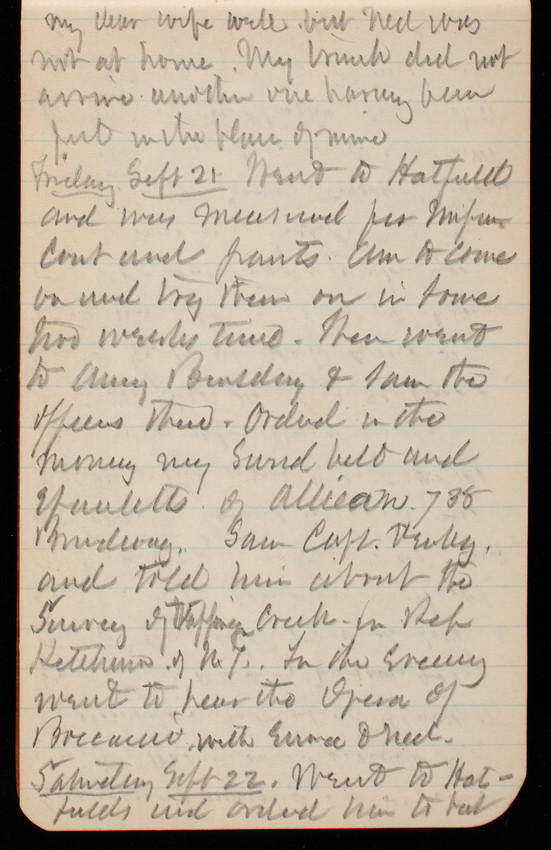 my dear wife well but Ned was
not at home. My trunk did not
arrive another one having been
put in the place of mine
Friday Sept 21 Went to Hatfield
and was measured for Unifrm
Coat and pants. Am to come
on and try them on in some
two weeks time. Then went
to Army Building & saw the
officers there. Ordered in the
morning my Sword belt and
Epauletts of Allican 738
Broadway. Saw Capt. Derby,
and told him about the
Survey of Creek for Rep
Ketcham of N.Y. In the Evening
went to hear the Opera of
Boccaccio, with Emma & Ned.
Saturday Sept 22. Went to Hat-
fields and ordered him to